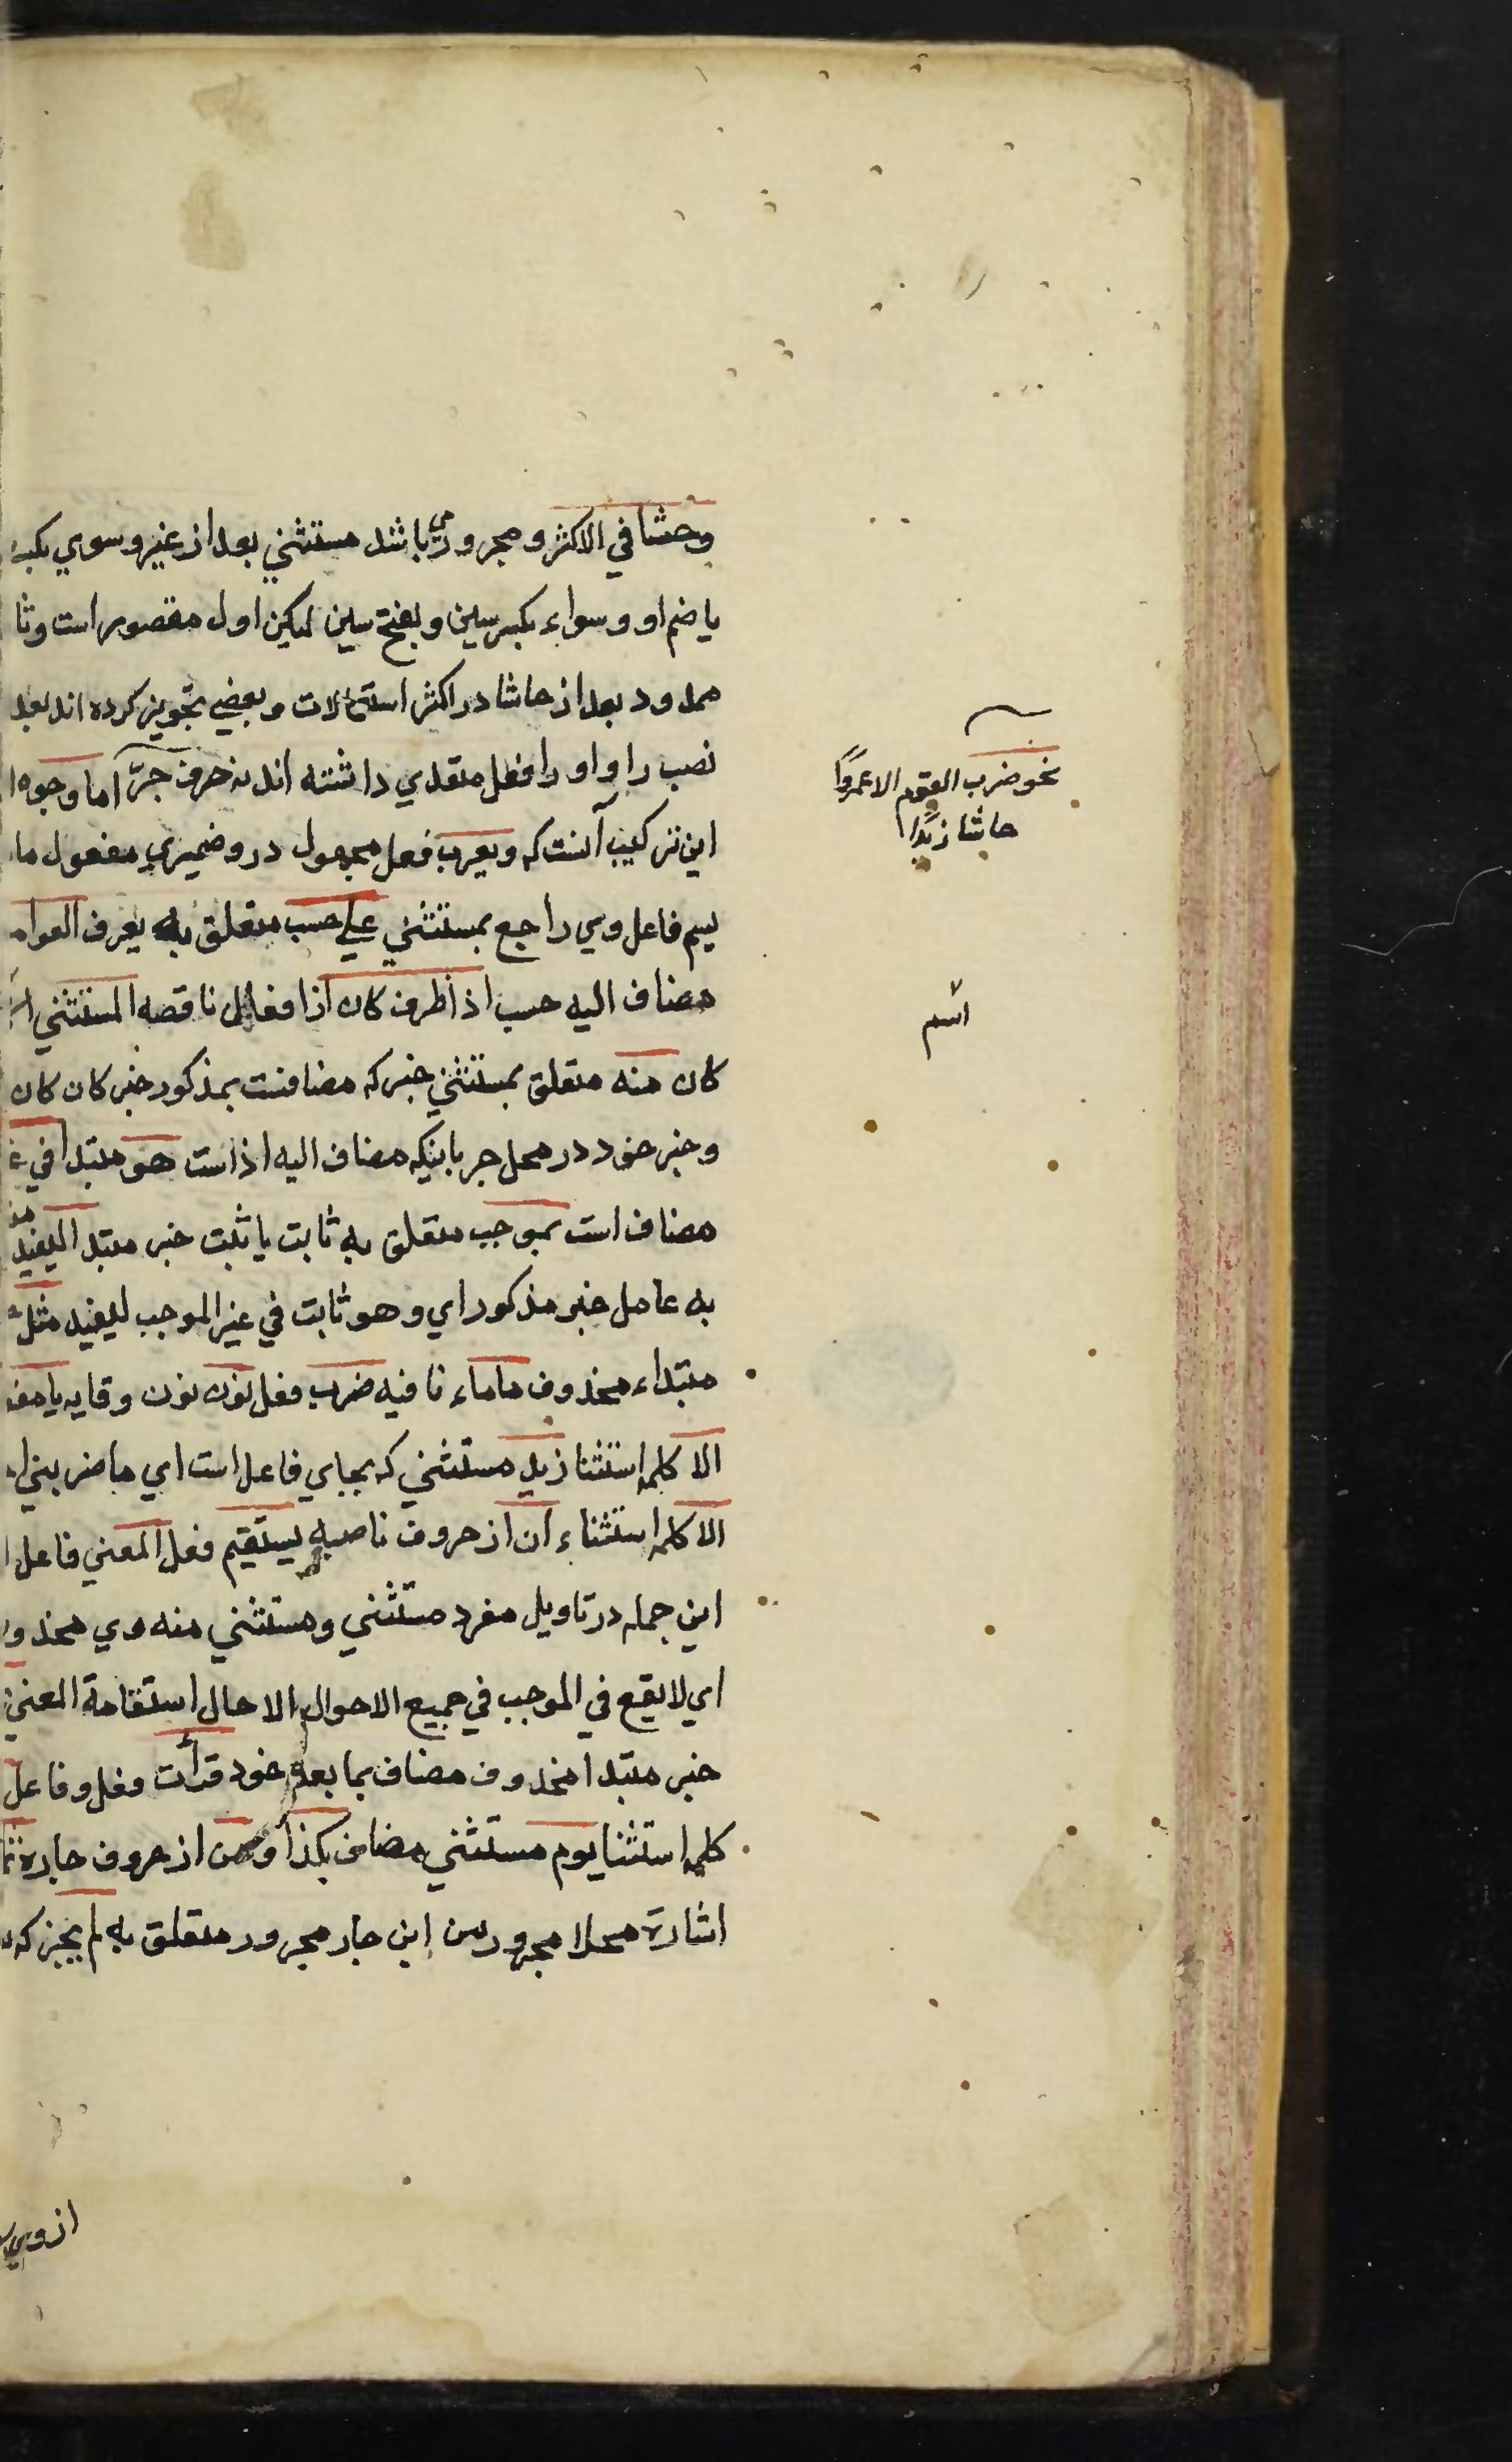 وحشا في الاكثر و مجرور می باشد مستثني بعد از غير و سوي بكسر
يا ضم او و سواء بكسر سين و بفتح سين ليكن اول مقصور است و ثا
ممدود بعد از حاشا در اكثر استعمالات و بعضي تجويز كرده اند بعد
نصب را و او را فعل متعدي داشته اند نه حرف جرّ اما وجوه ا
اين تركيب آنست كه و يعرب فعل مجهول در و ضميري مفعول ما
يسم فاعل وي راجع بمستثني علي حسب متعلق به يعرف العوام
مضاف اليه حسب اذا ظرف كان اذا فعل ناقصه المستثني
كان منه متعلق بمستثني خبر كه مضافست بمذكور خبر كان كان
و خبر خود در محل جر باينكه مضاف اليه اذا ست هو مبتدا في غ
مضاف است بموجب متعلق به ثابت يا ثبت خبر مبتدا ليفيد
به عامل خبر مذكور اي و هو ثابت في غير الموجب ليفيد مثل
مبتداء محذوف ما ماء نافيه ضرب فعل نون نون وقايه يا مفعو
الا كلمه استثنا زيد مستثني كه بجاي فاعل است اي ما ضربني ا
الا كلمه استثناء ان از حروف ناصبه يستقيم فعل المعني فاعل ا
اين جمله در تاويل مفرد مستثني و مستثني منه وي محذو
اي لا يقع في الموجب في جميع الاحوال الا حال استقامة المعني
خبر مبتدا محذوف مضاف بما بعد خود قرأت فعل و فاعل
كلمه استثنا يوم مستثني مضاف بكذا و من از حروف جاره
اشارة محلا مجرور من اين جار مجرور متعلق به لم يجز كه
نحو ضرب القوم الا عمروًا
حاشا زيدًا
اسم
از وي